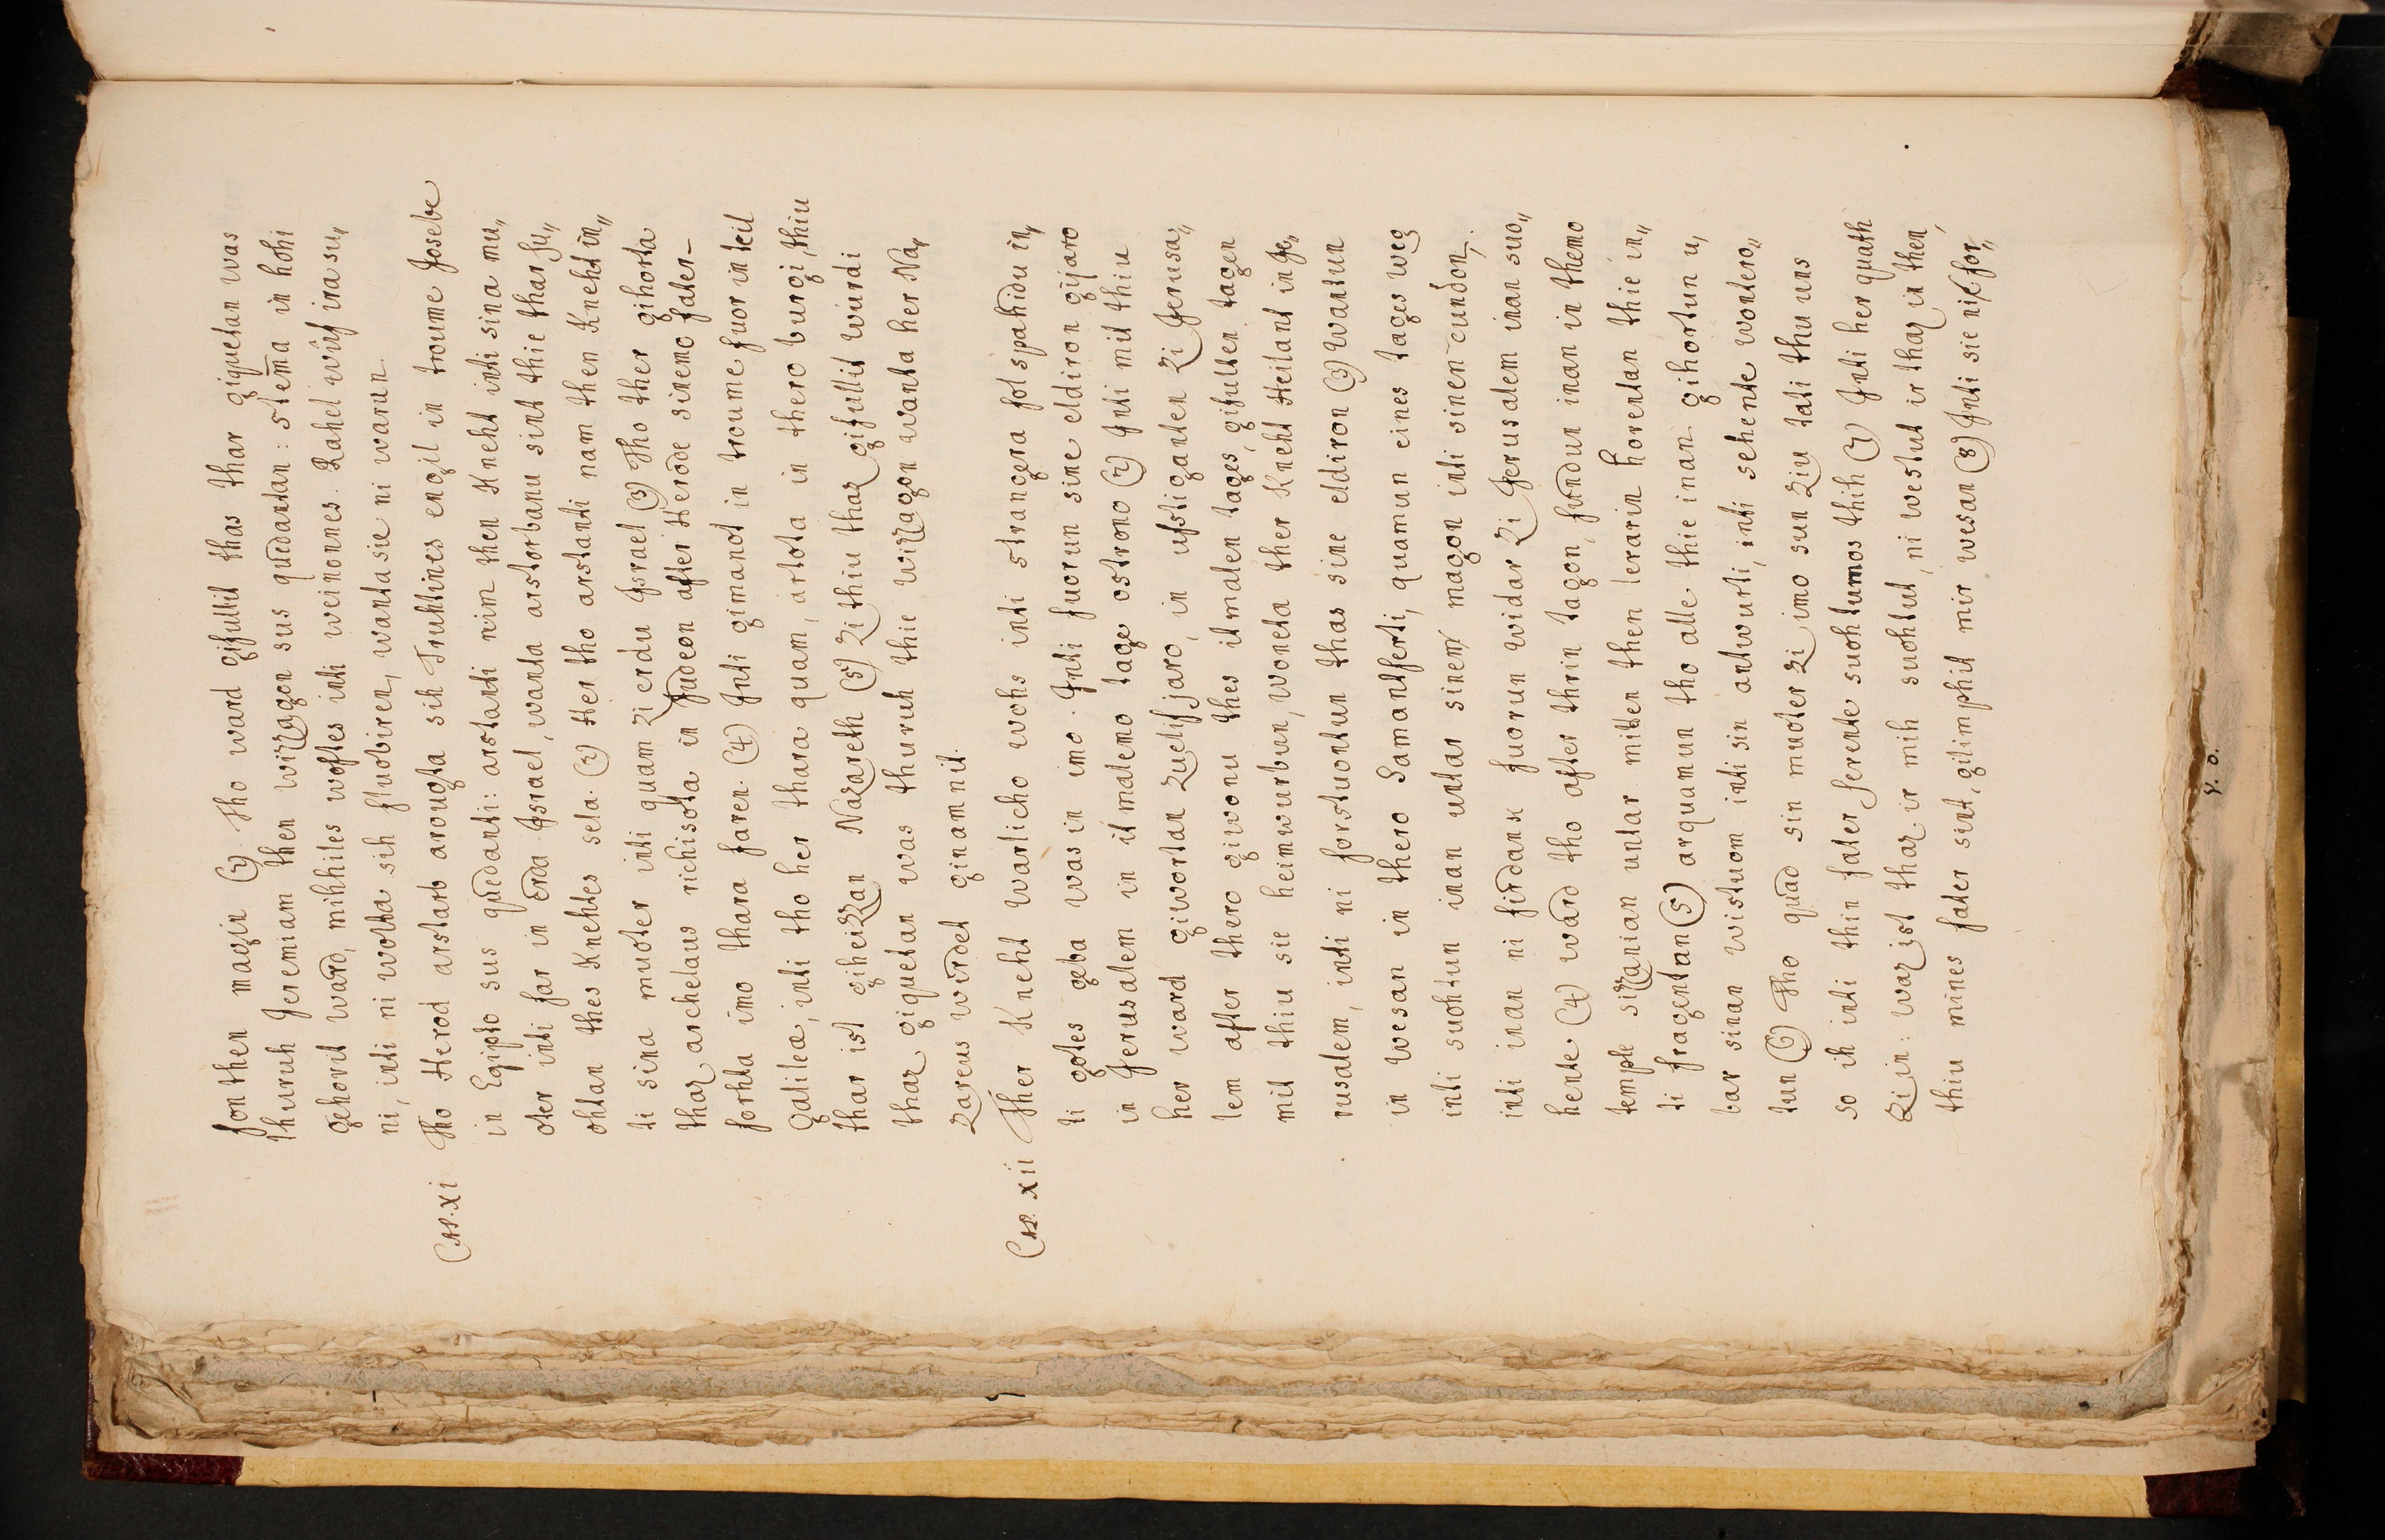 fon then magin (7) Tho ward gifullit thas thar giquetan was
thuruh Jeremiam then wizzagon sus quedantan: stema in hohi
gehorit ward, mihhiles wostes inti weinonnes. Rahel wûf ira su„
ni, inti ni wolta sih fluobiren, wanta sie ni warun.
Cap. xi Tho Herod arstarb arougta sih Truhtines engil in troume Josebe
in Egipto sus quedanti: arstanti nim then Kneht inti sina mu„
oter inti far in erda Israel, wanta arstorbanu sint thie thar su„
ohtan thes Knehtes sela. (2) Her tho arstanti nam then Kneht in„
ti sina muoter inti quam zi erdu Israel (3) Tho ther gihorta
thaz archelaus richisota in Judeon after Herode sinemo fater–
forhta imo thara faren. (4) Inti gimanot in troume fuor in teil
Galileæ, inti tho her thara quam, artota in thero burgi, thiu
thar ist giheizzan Nazareth (5) zi thiu thaz gifullit wurdi
thaz giquetan was thuruh thie wizzagon wanta her Na„
zareus wirdet ginamnit.
Cap. xii Ther Kneht warlicho wohs inti strangera fol spahidu in„
ti gotes geba was in imo. Inti fuorun sine eldiron gijaro
in Jerusalem in itmalemo tage ostrono (2) Inti mit thiu
her ward giwortan zuelif jaro, in ufstiganten zi Jerusa„
lem after thero giwonu thes itmalen tages, gifulten tagen
mit thiu sie heimwurbun, woneta ther Kneht Heilant in Je„
rusalem, inti ni forstuontun thas sine eldiron (3) Wantun
in wesan in thero Samantferti, quamun eines tages weg
inti suohtun inan untar sinem magon inti sinen cundon,.
inti inan ni findanti fuorun widar zi Jerusalem inan suo„
hente (4) ward tho after thrin tagon, fundun inan in themo
temple sizzanian untar mitten then lerarin horentan thie in„
ti fragentan (5) arquamun tho alle thie inan gihortun u„
bar sinan wistuom inti sin antwurti, inti sehente wontero„
tun (6) Tho quad sin muoter zi imo sun ziu tati thu uns
so ih inti thin fater serente suohtumos thih (7) Inti her quath
zi in: waz ist thaz ir mih suohtut, ni westut ir thaz in then,
thiu mines fater sint, gilimphit mir wesan (8) Inti sie ni for„